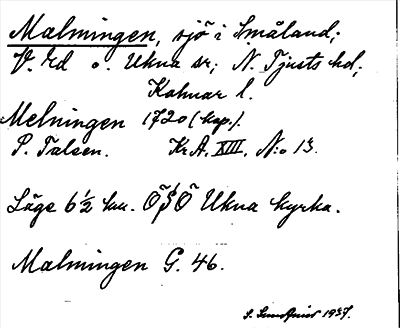 Malmingen, sjö i Småland;
V. Ed o. Ukna sr; N. Tjusts hd,
Kalmar l.
Melningen 1720 (kop.).
P. Talsen. Kr.A. XIII, N:o 13.
Läge 6½ km. ÖSÖ Ukna kyrka.
Malmingen G. 46.
S. 1937.